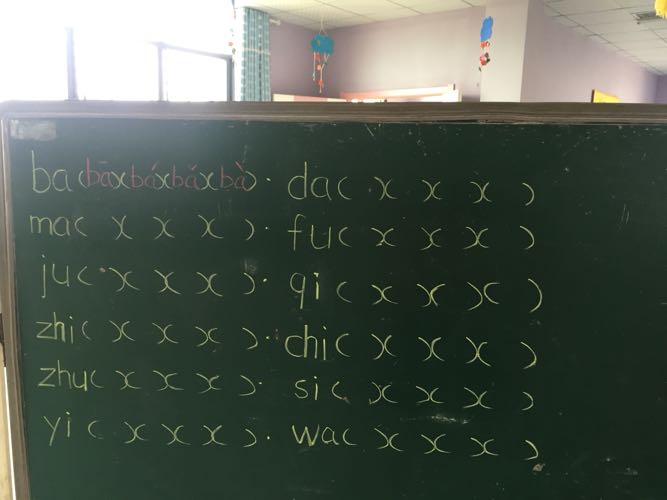 ba(bā)(bá)(bǎ)(bà). da( )( )( )( )
ma( )( )( )( ). fu( )( )( )( )
ju( )( )( )( ). qi( )( )( )( )
zhi( )( )( )( ). chi( )( )( )( )
zhu( )( )( )( ). si( )( )( )( )
yi( )( )( )( ). wa( )( )( )( )